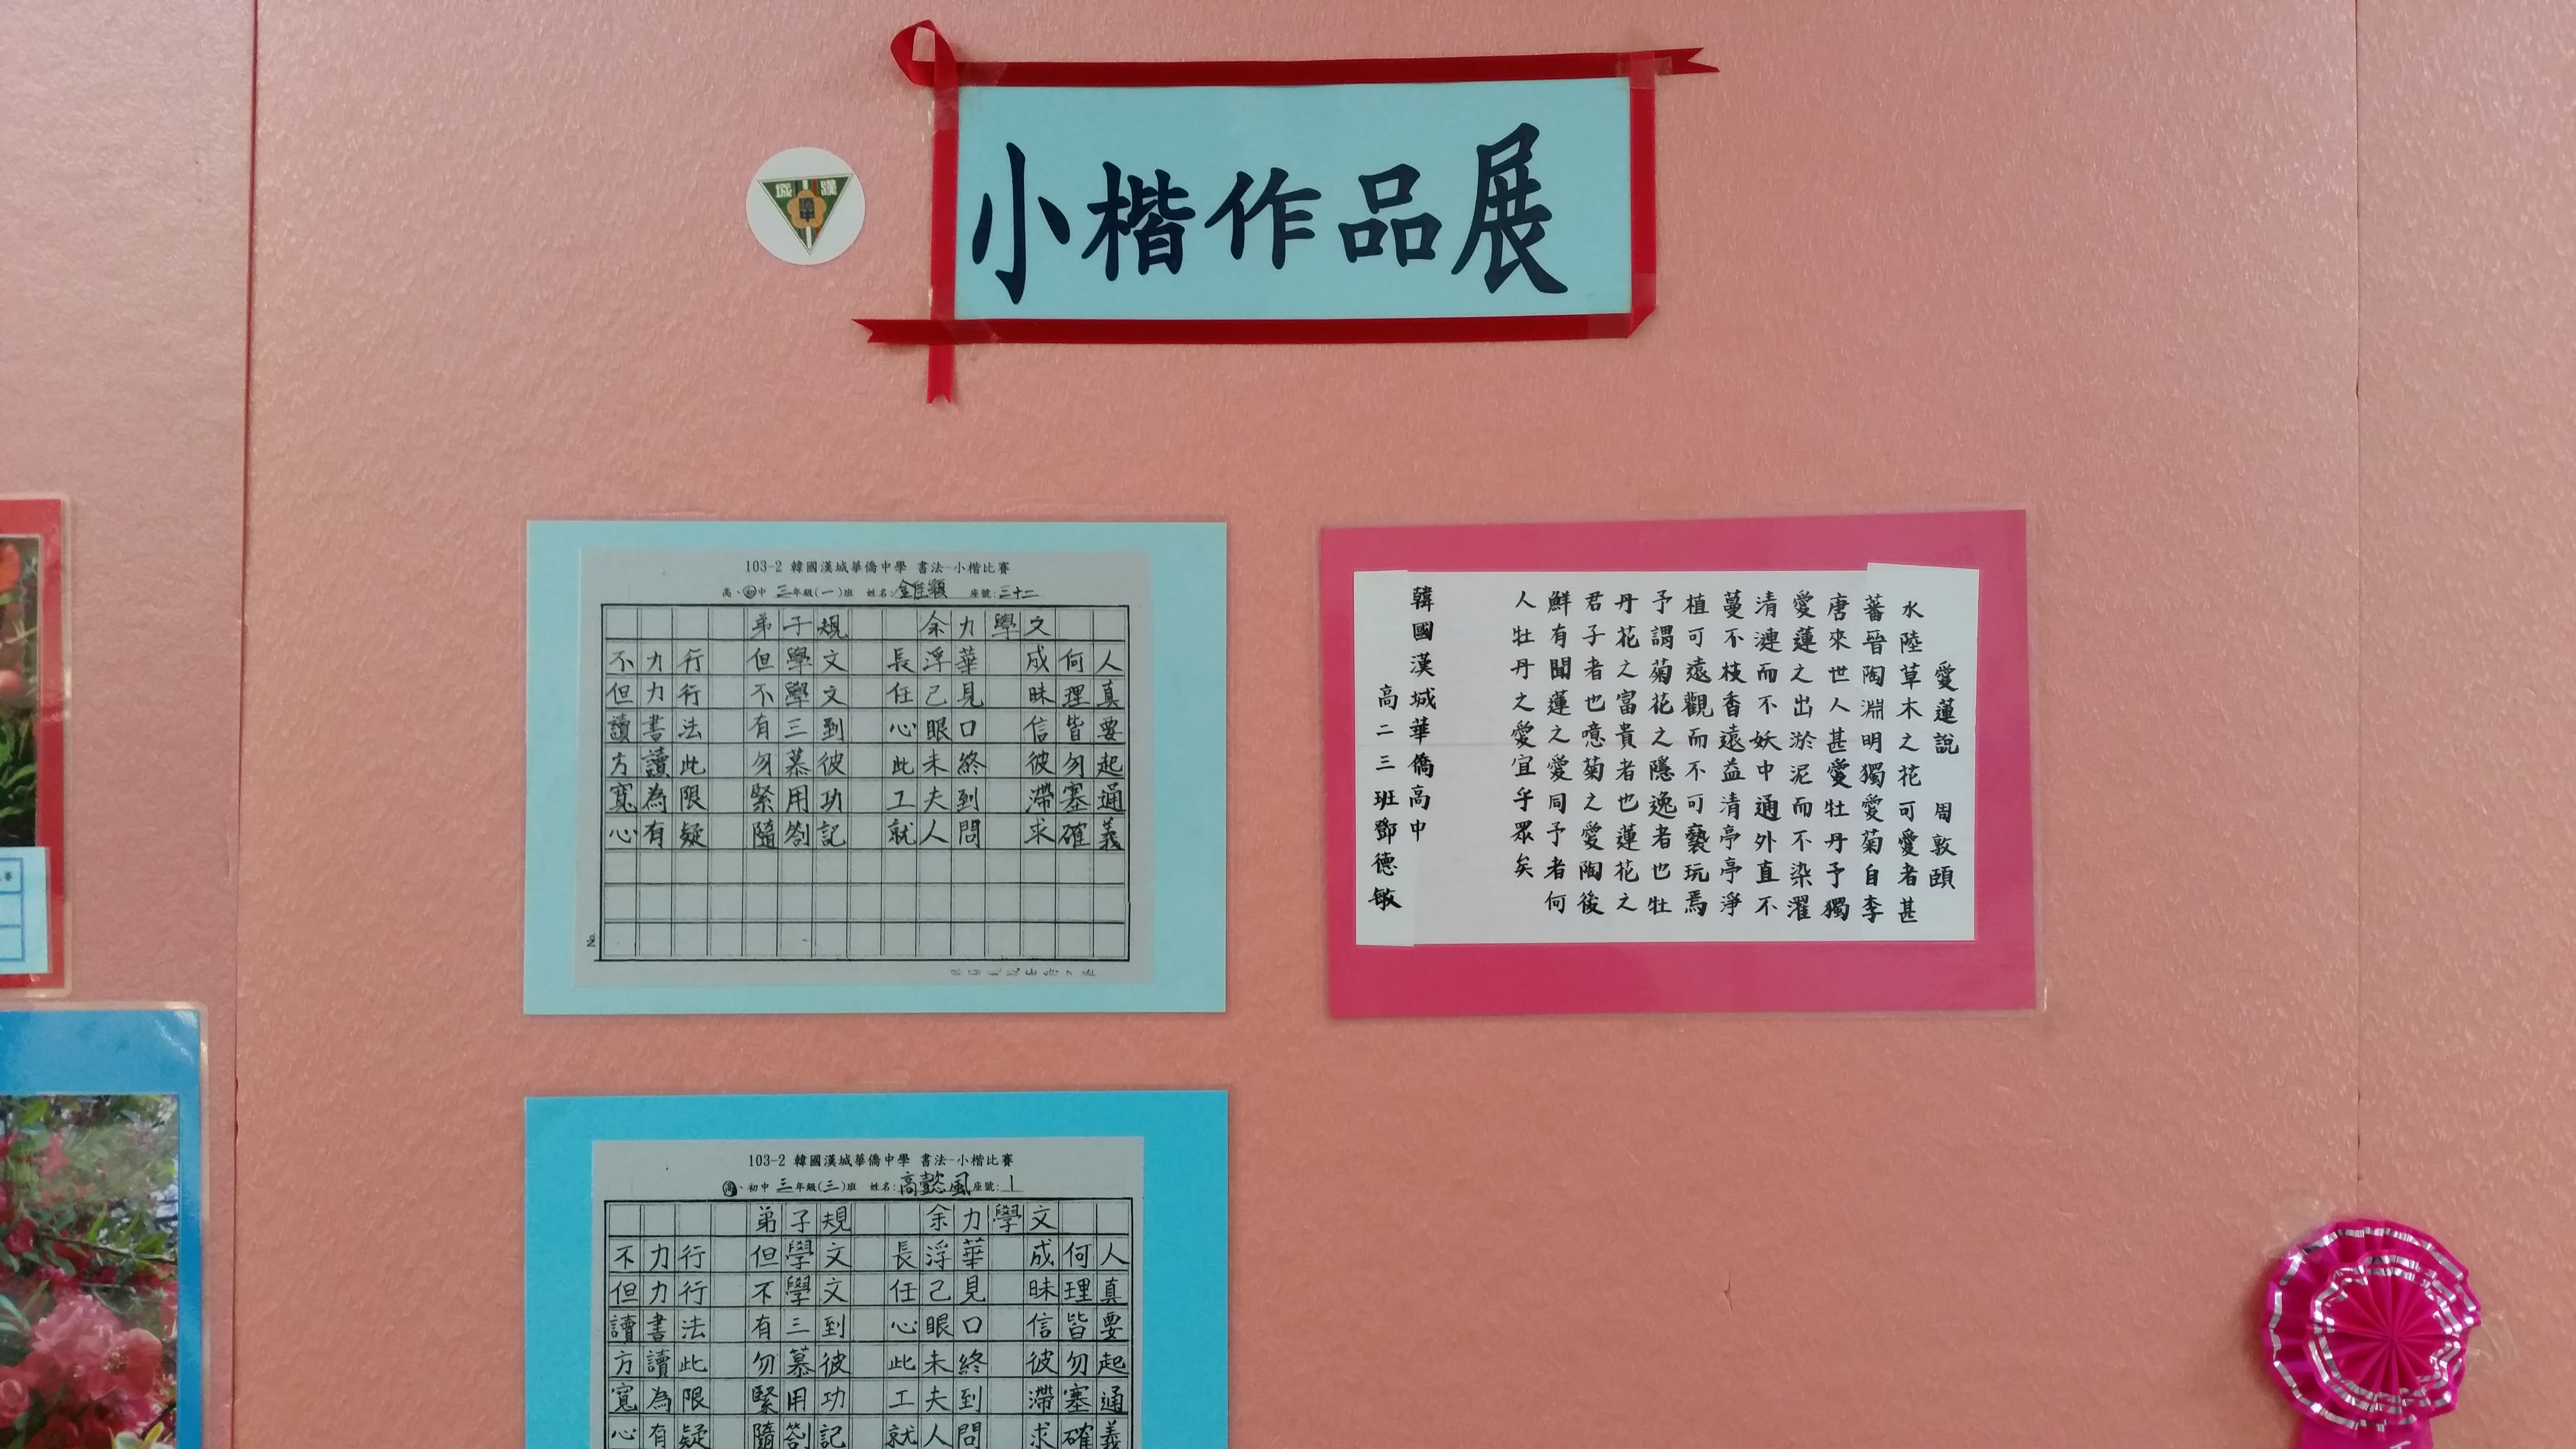 漢城
小楷作品展
103-2 韓國漢城華僑中學 書法-小楷比賽
高、初中 三年級(一)班 姓名: 座號:三十二
弟子規 余力學文
不力行 但學文 長浮華 成何人
但力行 不學文 任己見 昧理真
讀書法 有三到 心眼口 信皆要
方讀此 勿慕彼 此未終 彼勿起
寬為限 緊用功 工夫到 滯塞通
心有疑 隨劄記 就人問 求確義
愛蓮說 周敦頤
水陸草木之花可愛者甚
蕃晉陶淵明獨愛菊自李
唐來世人甚愛牡丹予獨
愛蓮之出淤泥而不染濯
清漣而不妖中通外直不
蔓不枝香遠益清亭亭淨
植可遠觀而不可褻玩焉
予謂菊花之隱逸者也牡
丹花之富貴者也蓮花之
君子者也噫菊之愛陶後
鮮有聞蓮之愛同予者何
人牡丹之愛宜乎眾矣
韓國漢城華僑高中
高二三班鄧德敏
103-2 韓國漢城華僑中學 書法-小楷比賽
高、初中 三年級(三)班 姓名:高懿風 座號:1
弟子規 余力學文
不力行 但學文 長浮華 成何人
但力行 不學文 任己見 昧理真
讀書法 有三到 心眼口 信皆要
方讀此 勿慕彼 此未終 彼勿起
寬為限 緊用功 工夫到 滯塞通
心有疑 隨劄記 就人問 求確義